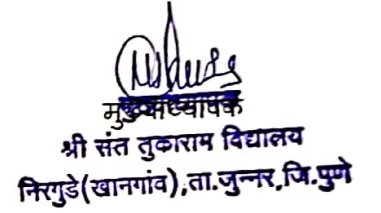 मुख्याध्यापक
श्री संत तुकाराम विद्यालय
निरगुडे(खानगांव),ता.जुन्नर,जि.पुणे